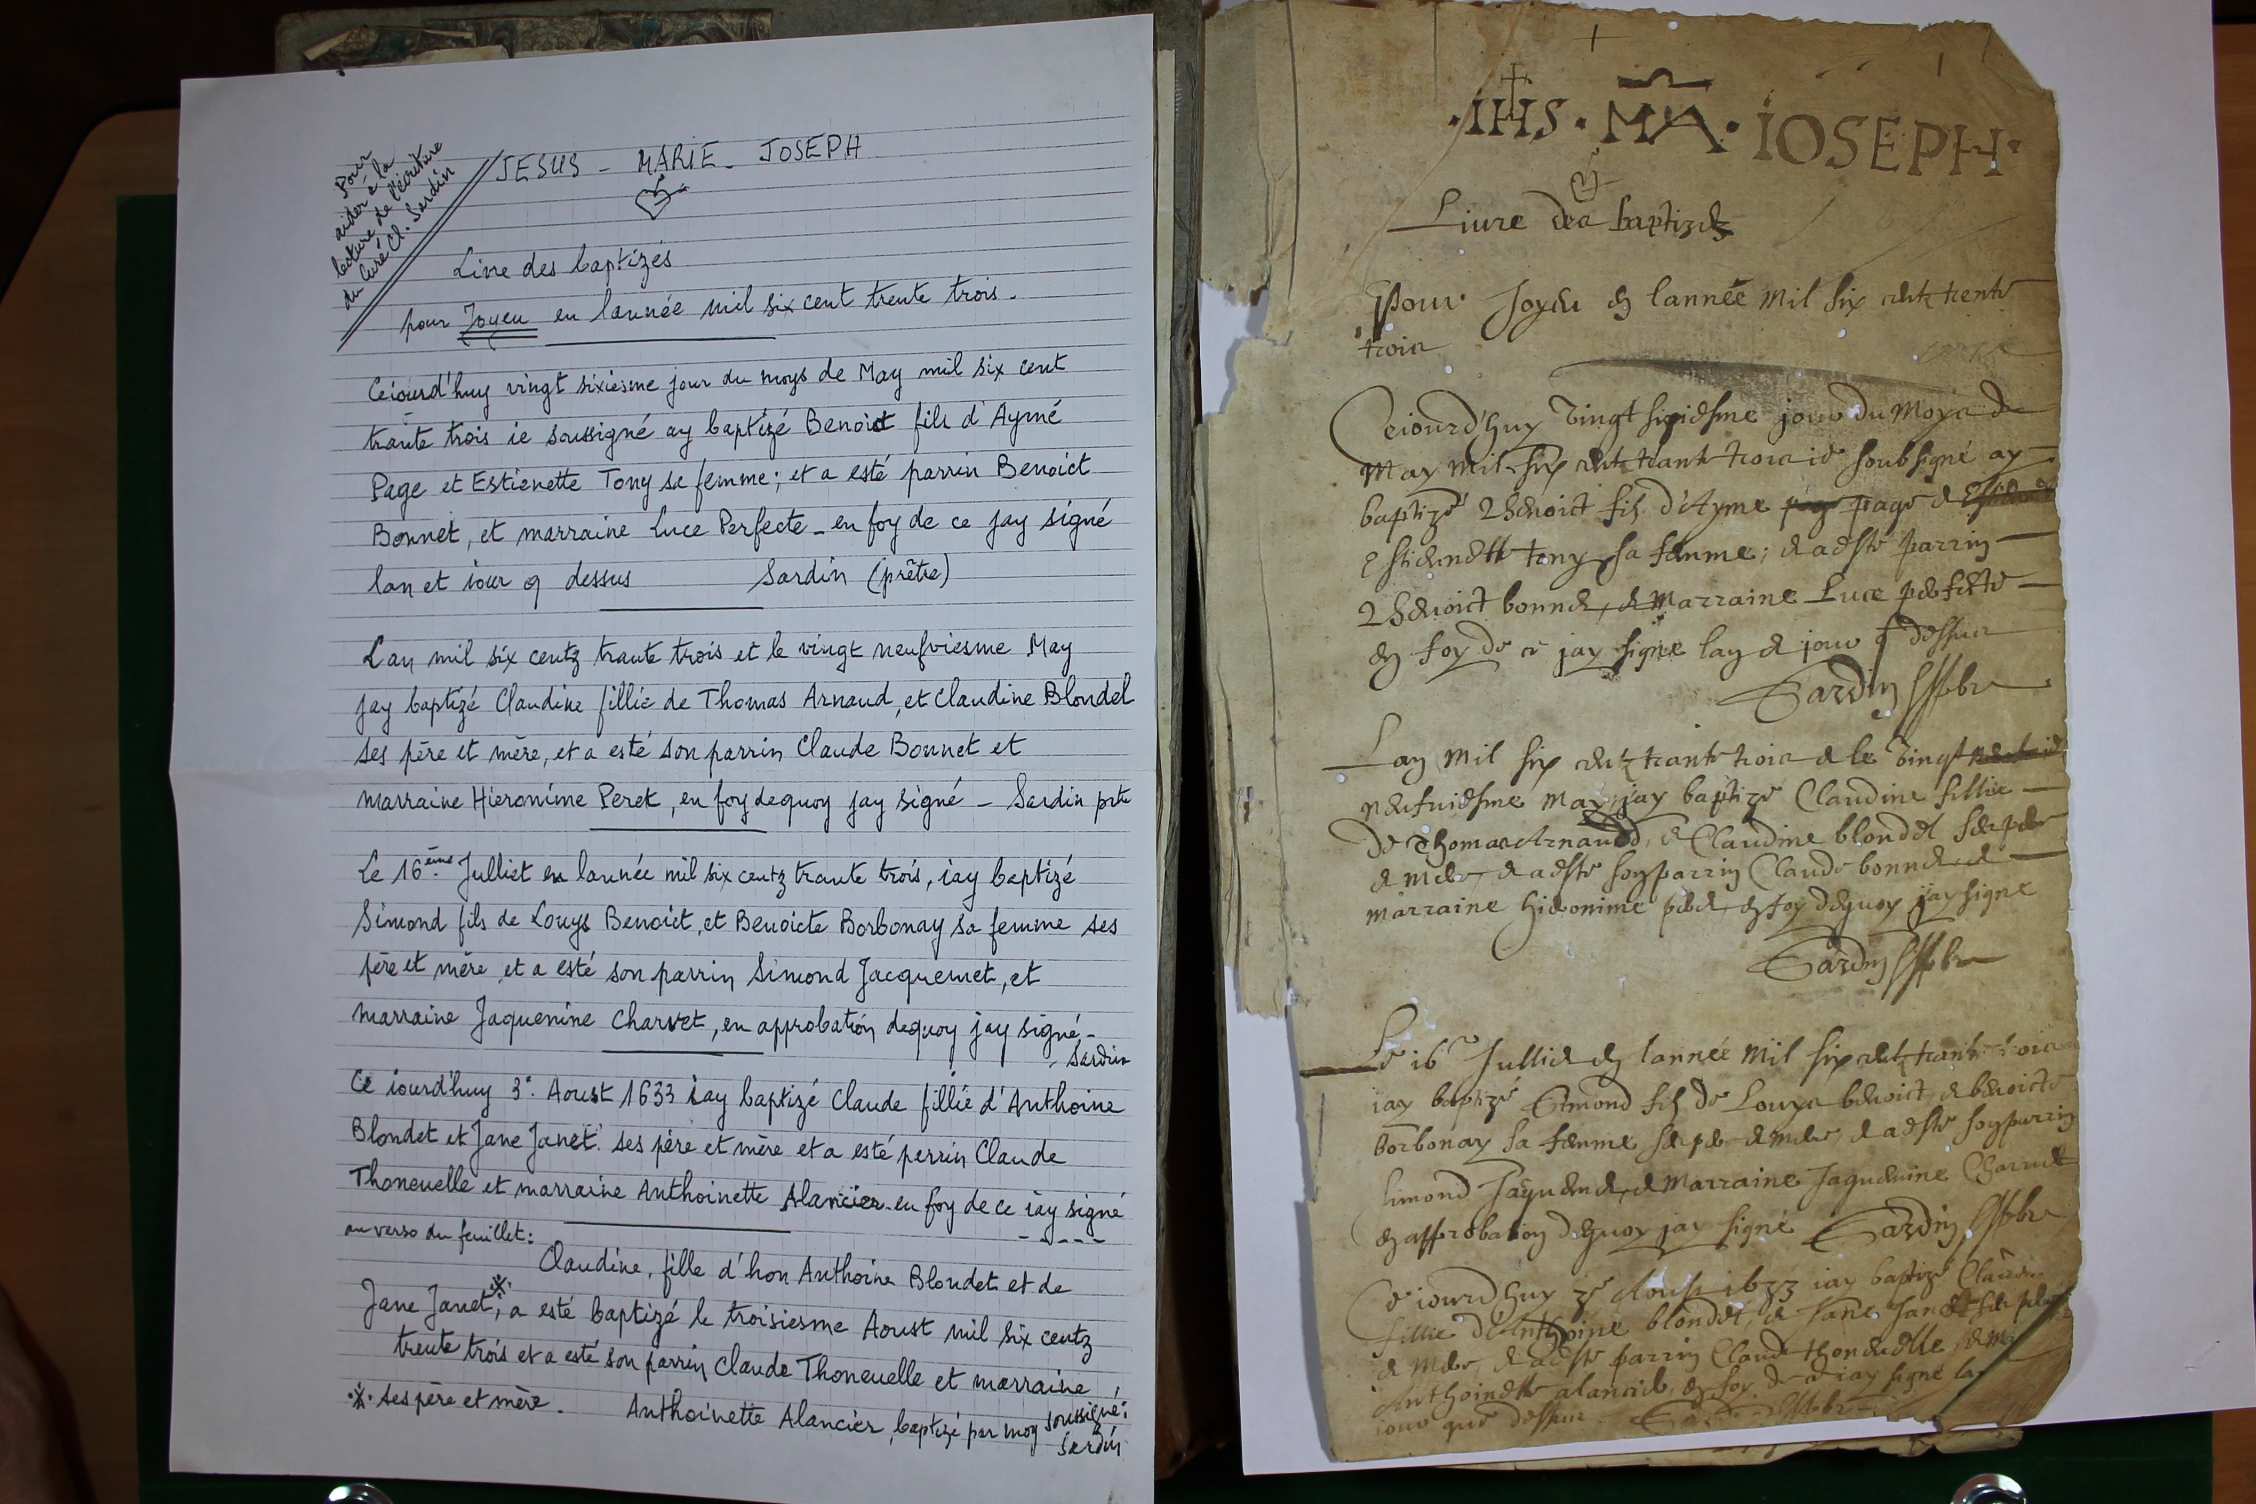 Pour
aider à la
lecture de l'écriture
du Curé Cl. Sardin
JESUS - MARIE - JOSEPH
Livre des baptizés
pour Joyeu en lannée mil six cent trente trois.
Ceiourd'huy vingt sixiesme jour du moys de May mil six cent
trante trois ie soussigné ay baptizé Benoict fils d'Aymé
Page et Estienette Tony sa femme; et a esté parrin Benoict
Bonnet, et marraine Luce Perfecte - en foy de ce jay signé
lan et iour q dessus Sardin (prêtre)
Lan mil six centz trante trois et le vingt neufviesme May
jay baptizé Claudine fillie de Thomas Arnaud, et Claudine Blondel
ses père et mère, et a esté son parrin Claude Bonnet et
marraine Hieronime Peret, en foy dequoy jay signé - Sardin ptr
Le 16ème Julliet en lannée mil six centz trante trois, iay baptizé
Simond fils de Louys Benoict, et Benoicte Borbonay sa femme ses
père et mère, et a esté son parrin Simond Jacquemet, et
marraine Jaquemine Charvet, en approbation dequoy jay signé -
Sardin
Ce iourd'huy 3e. Aoust 1633 iay baptizé Claude fillié d'Anthoine
Blondet et Jane Janet. ses père et mère et a esté perrin Claude
Thonevelle et marraine Anthoinette Alancier en foy de ce iay signé
au verso du feuillet: -----
Claudine, fille d'hon Anthoine Blondet et de
Jane Janet※, a esté baptizé le troisiesme Aoust mil six centz
trente trois et a esté son parrin Claude Thonevelle et marraine
※ ses père et mère. Anthoinette Alancier, baptizé par moy soussigné:
Sardin
·IHS· MA· IOSEPH·
Liure des baptizetz
Pour Joyeu en lannée mil six centz trente
trois
Ceiourd'huy vingt sixiesme jour du moys de
May mil six centz trante trois ie soubsigné ay
baptizé Benoict filz d'Ayme page et
Estienette tony sa femme; et a esté parrin
Benoict bonnet, et marraine Luce perfecte
en foy de ce jay signé lan et jour q dessus
Sardin
Lan mil six centz trante trois et le vingt
neufuiesme may jay baptizé Claudine fillie
de Thomas Arnaud, et Claudine blondel ses pere
et mere, et a esté son parrin Claude bonnet, et
marraine hieronime peret, en foy dequoy jay signé
Sardin
Le 16e Julliet en lannée mil six centz trante trois
iay baptizé Simond filz de Louys benoict, et benoicte
borbonay sa femme ses pere et mere, et a esté son parrin
simond Jaquemet, et marraine Jaquemine Charuet
en approbation dequoy jay signé Sardin
Ce iourd'huy 3e Aoust 1633 iay baptizé Claudine
fillie d'Anthoine blondet, et Jane Janet ses pere
et mere, et a esté parrin Claude thoneuelle, et
Anthoinette alancier, en foy de ce iay signé
iour que dessus